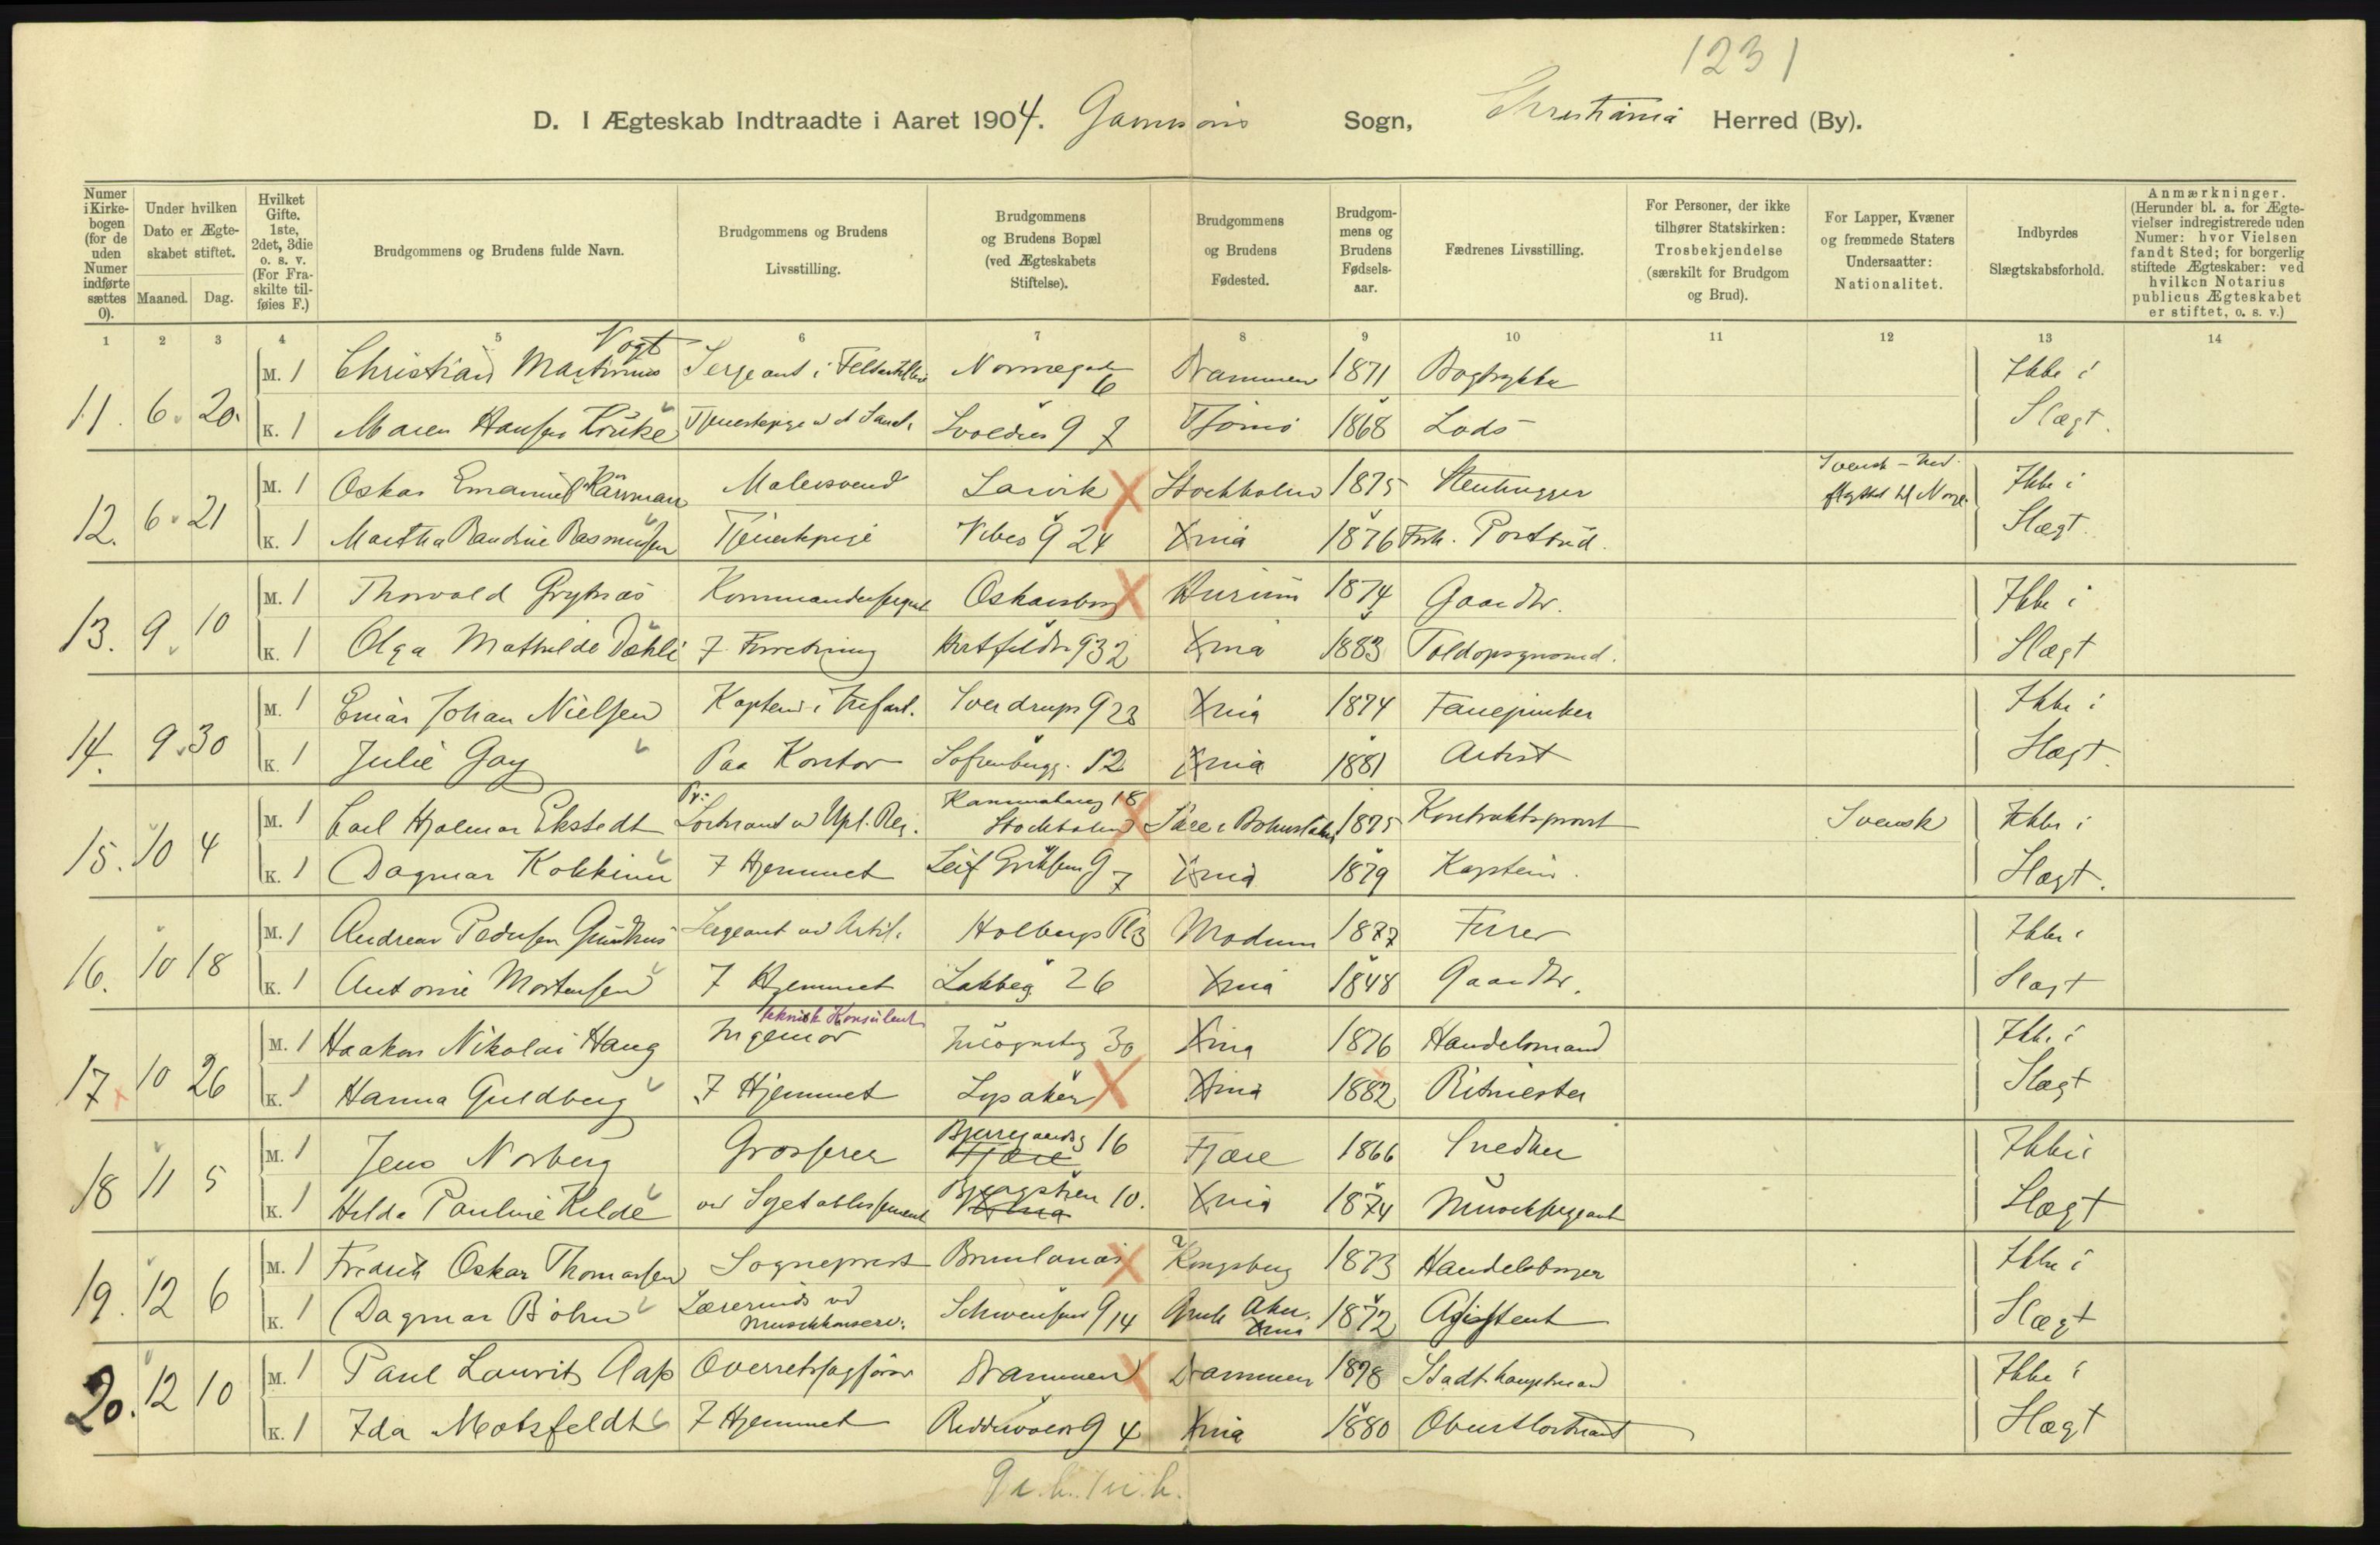 1231
D. I Ægteskab Indtraadte i Aaret 1904. Garnisons Sogn, Christiania Herred (By).
Numer i Kirkebogen (for de uden Numer indførte sættes 0).
Under hvilken Dato er Ægteskabet stiftet.
Maaned. Dag.
Hvilket Gifte. 1ste, 2det, 3die o. s. v. (For Fraskilte tilføies F.)
Brudgommens og Brudens fulde Navn.
Brudgommens og Brudens Livsstilling.
Brudgommens og Brudens Bopæl (ved Ægteskabets Stiftelse).
Brudgommens og Brudens Fødested.
Brudgommens og Brudens Fødselsaar.
Fædrenes Livsstilling.
For Personer, der ikke tilhører Statskirken: Trosbekjendelse (særskilt for Brudgom og Brud).
For Lapper, Kvæner og fremmede Staters Undersaatter: Nationalitet.
Indbyrdes Slægtskabsforhold.
Anmærkninger. (Herunder bl. a. for Ægtevielser indregistrerede uden Numer: hvor Vielsen fandt Sted; for borgerlig stiftede Ægteskaber: ved hvilken Notarius publicus Ægteskabet er stiftet, o. s. v.)
1 2 3 4 5 6 7 8 9 10 11 12 13 14
11. 6 20 M. 1 Christian Martinus Vogt Sergeant i Feltartilleri Normegaden 6 Drammen 1871 Bogtrykker Ikke i
K. 1 Maren Hansen Tjenestepige Svolders g 7 Tjømø 1868 Lods Slægt.
12. 6 21 M. 1 Oskar Emanuel Kärrman Malersvend Larvik Stockholm 1875 Stenhugger Svensk - flyttet til Norge Ikke i
K. 1 Martha Randine Rasmussen Tjenestepige Vibes g 24 Xnia 1876 Fh. Postbud. Slægt.
13. 9 10 M. 1 Thorvald Grytnæs Kommandersergeant Oskarsborg Hurum 1874 Gaardbr. Ikke i
K. 1 Olga Mathilde Dæhli I Forretning g 32 Xnia 1883 Toldopsynsmd. Slægt
14. 9 30 M. 1 Einar Johan Nielsen Kaptein i Infant. Sverdrups g 23 Xnia 1874 Fanejunker Ikke i
K. 1 Julie Gay Paa Kontor Sofienbergg. 12 Xnia 1881 Artist Slægt.
15. 10 4 M. 1 Carl Hjalmar Ekstedt Pr: Løitnant v Upl. Reg. 18 Stockholm Bohuslän 1875 Kontraktsprovst Svensk Ikke i
K. 1 Dagmar Kolkinn I Hjemmet Leif Eriksens g 7 Xnia 1879 Kaptein. Slægt.
16. 10 18 M. 1 Andreas Pedersen Sergeant ved Artil. Holbergs Pl 3 Modum 1877 Ikke i
K. 1 Antonie Mortensen I Hjemmet Lakkeg 26 Xnia 1848 Gaardbr. Slægt
17 10 26 M. 1 Haakon Nikolai Haug Ingeniør teknisk Konsulent Incognitog 30 Xnia 1876 Handelsmand Ikke i
K. 1 Hanna Guldberg I Hjemmet Lysaker Xnia 1882 Ritmester Slægt
18 11 5 M. 1 Jens Norberg Grosserer Bjerregaardsg 16 Fjære Fjære 1866 Snedker Ikke i
K. 1 Hilda Pauline Kilde ved Syetablissement Bjergstien 10. Xnia Xnia 1874 Musiksergeant Slægt
19. 12 6 M. 1 Fredrik Oskar Thomassen Sogneprest Brunlanæs Kongsberg 1873 Handelsborger Ikke i
K. 1 Dagmar Böhn Lærerinde ved Musikkonserv. Schwensens g 14 Aker Xnia 1872 Assistent Slægt
20. 12 10 M. 1 Paul Laurits Aas Overretssagfører Drammen Drammen 1878 Stadthauptmand Ikke i
K. 1 Ida Motzfeldt I Hjemmet Riddervolds g 4 Xnia 1880 Oberstløitnant Slægt